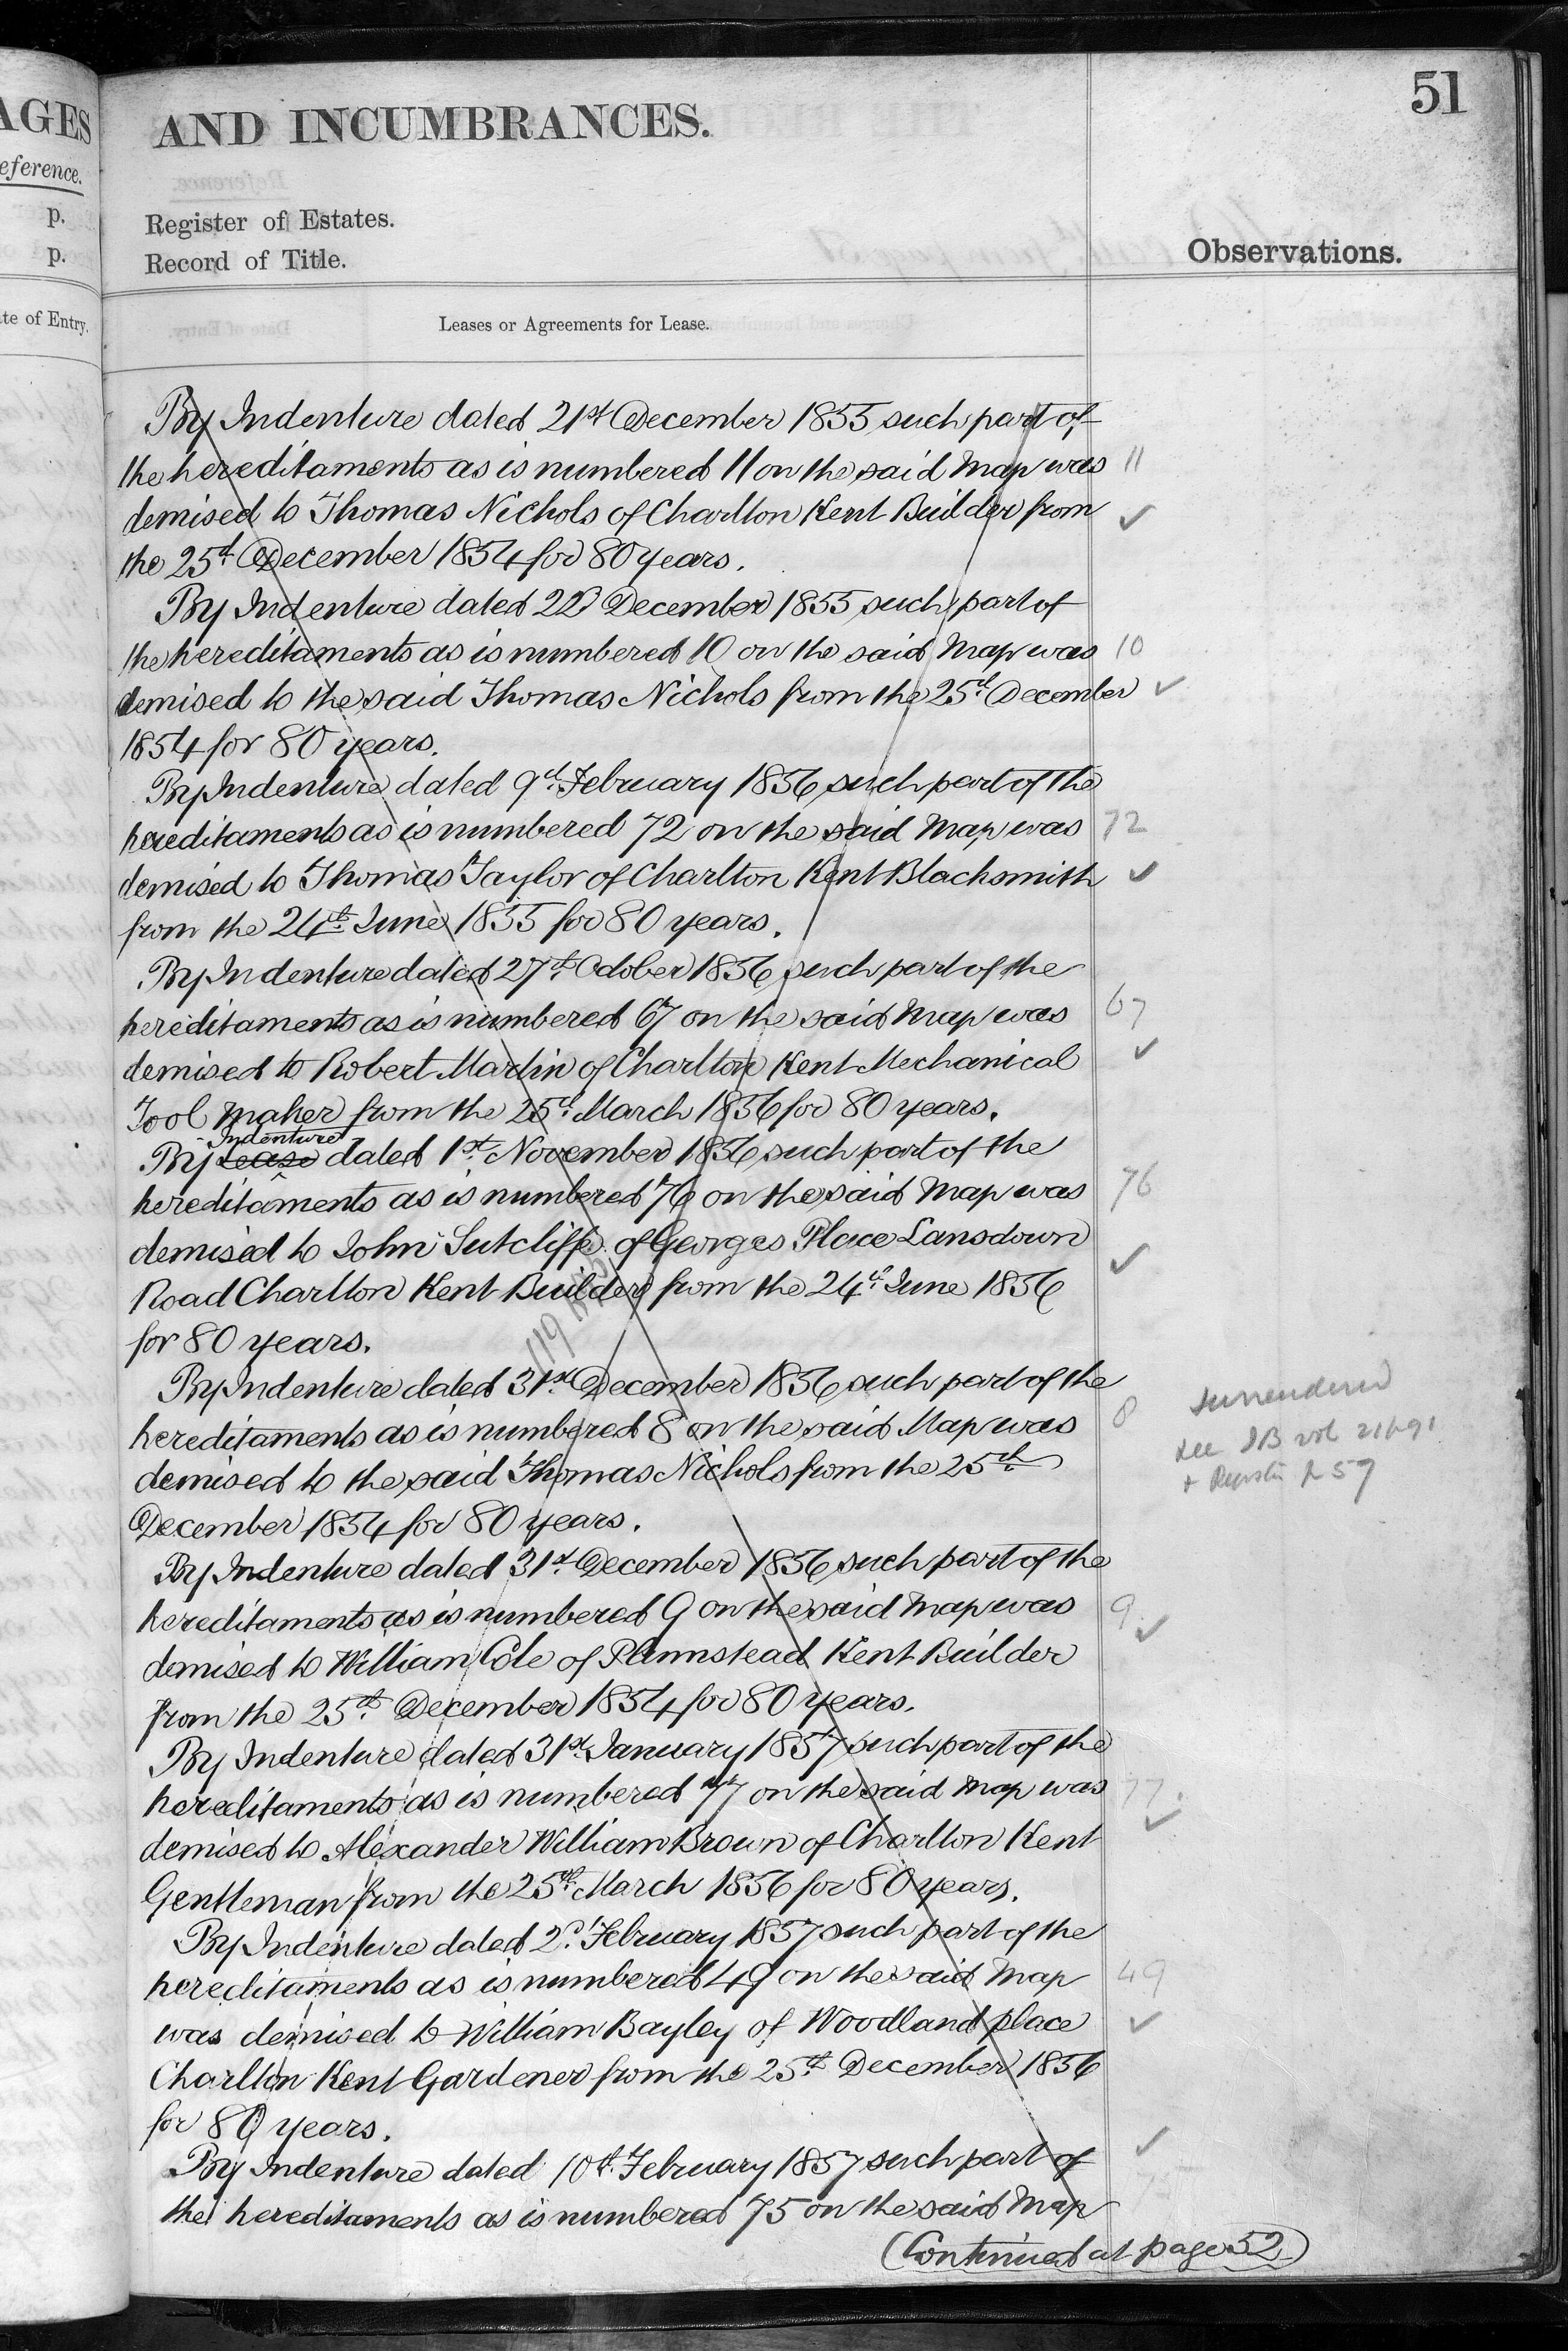 AGES
eference.
p.
p.
te of Entry.
51
AND INCUMBRANCES.
Register of Estates.
Record of Title.
Observations.
Leases or Agreements for Lease.
By Indenture dated 21st December 1855 such part of
the hereditaments as is numbered 11 on the said Map was 11
demised to Thomas Nichols of Charlton Kent Builder from
the 25th December 1854 for 80 years.
By Indenture dated 22d December 1855 such part of
the hereditaments as is numbered 10 on the said Map was 10
demised to the said Thomas Nichols from the 25th December
1854 for 80 years.
By Indenture dated 9th February 1856 such part of the
hereditaments as is numbered 72 on the said Map was 72
demised to Thomas Taylor of Charlton Kent Blacksmith
from the 24th June 1855 for 80 years.
By Indenture dated 27th October 1856 such part of the
hereditaments as is numbered 67 on the said Map was 67
demised to Robert Martin of Charlton Kent Mechanical
Tool Maker from the 25th March 1856 for 80 years.
Indenture
By Lease dated 1st November 1856 such part of the
hereditaments as is numbered 76 on the said Map was 76
demised to John Sutcliffe of Georges Place Lansdown
Road Charlton Kent Builder from the 24th June 1856
for 80 years.
By Indenture dated 31st December 1856 such part of the
hereditaments as is numbered 8 on the said Map was 8
demised to the said Thomas Nichols from the 25th
December 1854 for 80 years.
Surrendered
See vol 21
57
By Indenture dated 31st December 1856 such part of the
hereditaments as is numbered 9 on the said Map was 9
demised to William Cole of Plumstead Kent Builder
from the 25th December 1854 for 80 years.
By Indenture dated 31st January 1857 such part of the
hereditaments as is numbered 77 on the said Map was 77
demised to Alexander William Brown of Charlton Kent
Gentleman from the 25th March 1856 for 80 years.
By Indenture dated 2d February 1857 such part of the
hereditaments as is numbered 49 on the said Map 49
was demised to William Bayley of Woodland place
Charlton Kent Gardener from the 25th December 1856
for 80 years.
By Indenture dated 10th February 1857 such part of
the hereditaments as is numbered 75 on the said Map
(Continued at page 52)